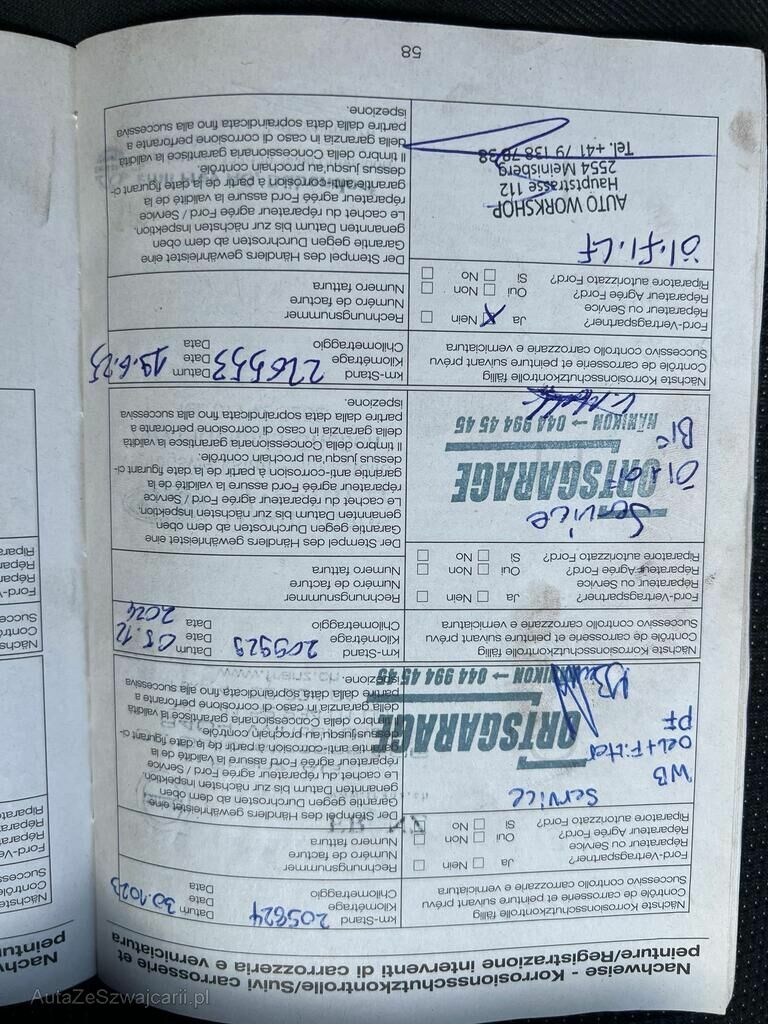 Nachweise - Korrosionsschutzkontrolle/Suivi carrosserie et
peinture/Registrazione interventi di carrozzeria e verniciatura
Nächste Korrosionsschutzkontrolle fällig
Contrôle de carrosserie et peinture suivant prévu
Successivo controllo carrozzerie e verniciatura
km-Stand
Kilométrage
Chilometraggio
205824
Datum
Date
Data
30.1023
Ford-Vertragspartner?
Réparateur ou Service
Réparateur Agrée Ford?
Riparatore autorizzato Ford?
Ja Nein
Oui Non
Si No
Rechnungsnummer
Numéro de facture
Numero fattura
Service
WB
Oel+Filter
PF
ORTSGARAGE
HÄNIKON → 044 994 45 45
Der Stempel des Händlers gewährleistet eine
Garantie gegen Durchrosten ab dem oben
genannten Datum bis zur nächsten Inspektion.
Le cachet du réparateur agréé Ford / Service
réparateur Ford assure la validité de la
garantie anti-corrosion à partir de la date figurant ci-
dessus jusqu'au prochain contrôle.
Il timbro della Concessionaria garantisce la validità
della garanzia in caso di corrosione perforante a
partire dalla data sopraindicata fino alla successiva
ispezione.
Nächste Korrosionsschutzkontrolle fällig
Contrôle de carrosserie et peinture suivant prévu
Successivo controllo carrozzerie e verniciatura
km-Stand
Kilométrage
Chilometraggio
209929
Datum
Date
Data
05.12
2024
Ford-Vertragspartner?
Réparateur ou Service
Réparateur Agrée Ford?
Riparatore autorizzato Ford?
Ja Nein
Oui Non
Si No
Rechnungsnummer
Numéro de facture
Numero fattura
Service
ORTSGARAGE
HÄNIKON → 044 994 45 45
Der Stempel des Händlers gewährleistet eine
Garantie gegen Durchrosten ab dem oben
genannten Datum bis zur nächsten Inspektion.
Le cachet du réparateur agréé Ford / Service
réparateur Ford assure la validité de la
garantie anti-corrosion à partir de la date figurant ci-
dessus jusqu'au prochain contrôle.
Il timbro della Concessionaria garantisce la validità
della garanzia in caso di corrosione perforante a
partire dalla data sopraindicata fino alla successiva
ispezione.
Nächste Korrosionsschutzkontrolle fällig
Contrôle de carrosserie et peinture suivant prévu
Successivo controllo carrozzerie e verniciatura
km-Stand
Kilométrage
Chilometraggio
226553
Datum
Date
Data
19.6.25
Ford-Vertragspartner?
Réparateur ou Service
Réparateur Agrée Ford?
Riparatore autorizzato Ford?
Ja Nein
Oui Non
Si No
Rechnungsnummer
Numéro de facture
Numero fattura
öl.Fi.LF
AUTO WORKSHOP
Hauptstrasse 112
2554 Meinisberg
Tel. +41 79 138 78 38
Der Stempel des Händlers gewährleistet eine
Garantie gegen Durchrosten ab dem oben
genannten Datum bis zur nächsten Inspektion.
Le cachet du réparateur agréé Ford / Service
réparateur Ford assure la validité de la
garantie anti-corrosion à partir de la date figurant ci-
dessus jusqu'au prochain contrôle.
Il timbro della Concessionaria garantisce la validità
della garanzia in caso di corrosione perforante a
partire dalla data sopraindicata fino alla successiva
ispezione.
58
AutaZeSzwajcarii.pl